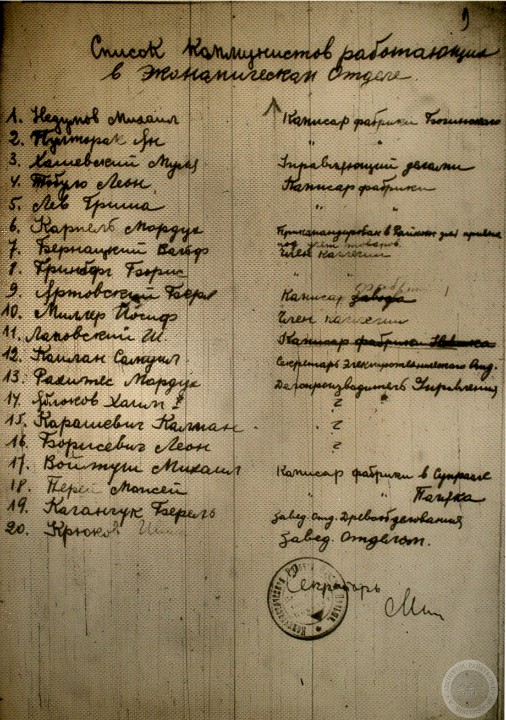 9
Список коммунистов работающих
в экономическом Отделе.
1. Незумов Михаил Комисар фабрики
2. Пулторак Ян " "
3. Хашевский Муля Управляющий делами
4. Тобук Леон. Комисар фабрики
5. Лев Гриша " "
6. Карпель Мордух Прикомандирован в
7. Бернацкий Вольф Член коллегии
8. Гринберг Борис "
9. Яртовский Берл Комисар завода
10. Миллер Иосиф Член коллегии
11. Лаповский Ш. Комисар фабрики
12. Каплан Самуил Секретарь Отд.
13. Рахитес Мордух Делопроизводитель Управления
14. Яблоков Хаим ? "
15. Карашевич Калман ?
16. Борисевич Леон ?
17. Войтуш Михаил Комисар фабрики в Супрасле
18. Перей Моисей " "
19. Каганчук Берель Завед. Отд. Древообделования
20. Крюков Завед. Отделом.
Секретарь